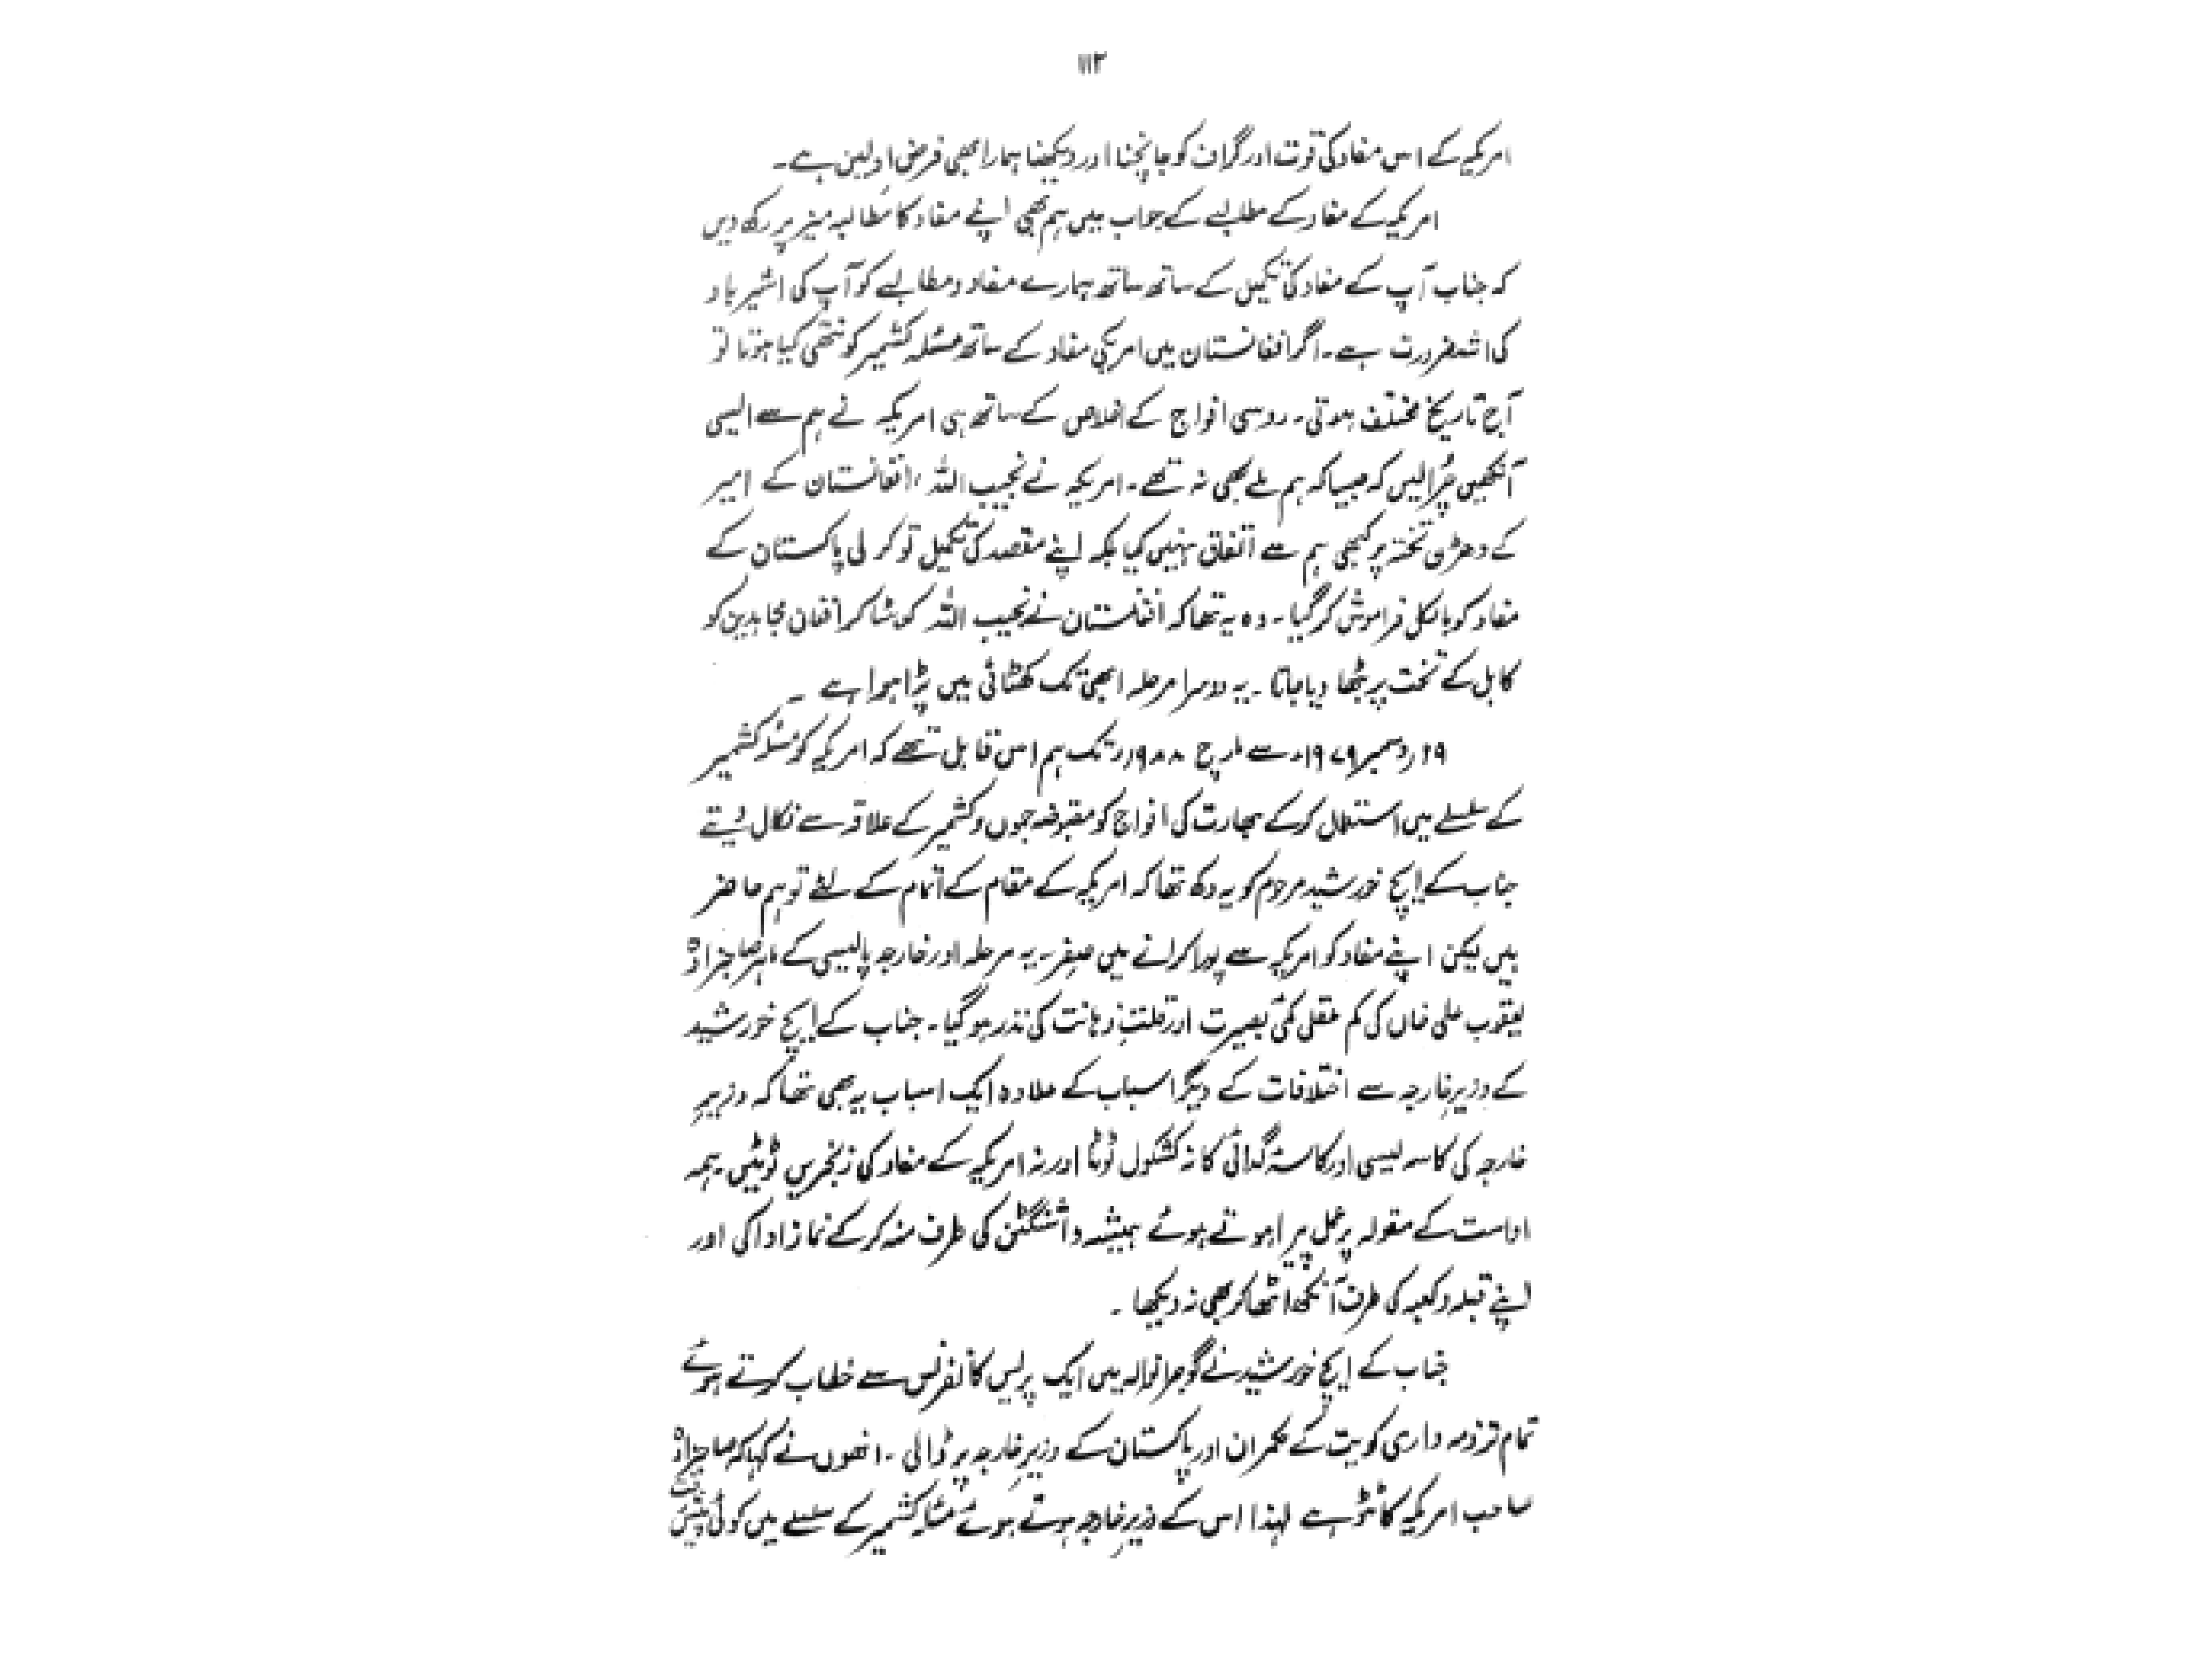 ۱۱۲
امریکہ کے اس مفاد کی قوت اور گراف کو جانچنا اور دیکھنا ہمارا بھی فرض اولین ہے۔
امریکہ کے مفاد کے مطالبے کے جواب میں ہم بھی اپنے مفاد کا مطالبہ میز پر رکھ دیں
کہ جناب آپ کے مفاد کی تکمیل کے ساتھ ساتھ ہمارے مفاد و مطالبے کو آپ کی اشیر باد
کی اشد ضرورت ہے۔ اگر افغانستان میں امریکی مفاد کے ساتھ مسئلہ کشمیر کو نتھی کیا ہوتا تو
آج تاریخ مختلف ہوتی۔ روسی افواج کے اخلاص کے ساتھ ہی امریکہ نے ہم سے ایسی
آنکھیں چُرا لیں کہ جیسا کہ ہم ملے بھی نہ تھے۔ امریکہ نے نجیب اللہ، افغانستان کے امیر
کے دھڑن تختہ پر کبھی ہم سے اتفاق نہیں کیا بلکہ اپنے مقصد کی تکمیل تو کر لی پاکستان کے
مفاد کو بالکل فراموش کر گیا۔ وہ یہ تھا کہ افغانستان نے نجیب اللہ کو ہٹا کر افغان مجاہدین کو
کابل کے تخت پر بٹھا دیا جاتا۔ یہ دوسرا مرحلہ ابھی تک کھٹائی میں پڑا ہوا ہے۔
۲۹ دسمبر ۱۹۷۹ء سے مارچ ۱۹۸۸ء تک ہم اس قابل تھے کہ امریکہ کو مسئلہ کشمیر
کے سلسلے میں استعمال کر کے بھارت کی افواج کو مقبوضہ جموں و کشمیر کے علاقہ سے نکال دیتے
جناب کے ایچ خورشید مرحوم کو یہ دکھ تھا کہ امریکہ کے مقام کے اتمام کے لئے تو ہم حاضر
ہیں لیکن اپنے مفاد کو امریکہ سے پورا کرانے میں صفر۔ یہ مرحلہ اور خارجہ پالیسی کے ماہر صاحبزادہ
یعقوب علی خاں کی کم عقلی کمئ بصیرت اور قلتِ ذہانت کی نذر ہو گیا۔ جناب کے ایچ خورشید
کے وزیرِ خارجہ سے اختلافات کے دیگر اسباب کے علاوہ ایک اسباب یہ بھی تھا کہ وزیرِ
خارجہ کی کاسہ لیسی اور کاسۂ گدائی کا نہ کشکول ٹوٹا اور نہ امریکہ کے مفاد کی زنجیریں ٹوٹیں۔ ہمہ
اواست کے مقولہ پر عمل پیرا ہوتے ہوئے ہمیشہ واشنگٹن کی طرف منہ کر کے نماز ادا کی اور
اپنے قبلہ و کعبہ کی طرف آنکھ اٹھا کر بھی نہ دیکھا۔
جناب کے ایچ خورشید نے گوجرانوالہ میں ایک پریس کانفرنس سے خطاب کرتے ہوئے
تمام تر ذمہ داری کویت کے حکمران اور پاکستان کے وزیرِ خارجہ پر ڈالی۔ انھوں نے کہا کہ صاحبزادہ
صاحب امریکہ کا ٹٹو ہے لہٰذا اس کے وزیرِ خارجہ ہوتے ہوئے مسئلہ کشمیر کے سلسلے میں کوئی پیش